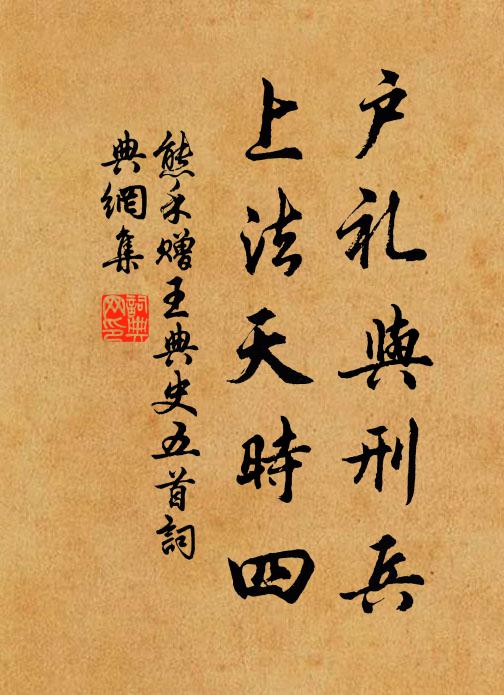 户礼與刑兵
上法天時四
熊禾贈王典史五首詞
典網集
詞典網印